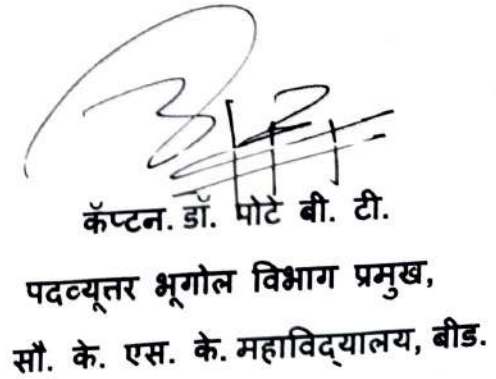 कॅप्टन. डॉ. पोटे बी. टी.
पदव्यूत्तर भूगोल विभाग प्रमुख,
सौ. के. एस. के. महाविद्यालय, बीड.